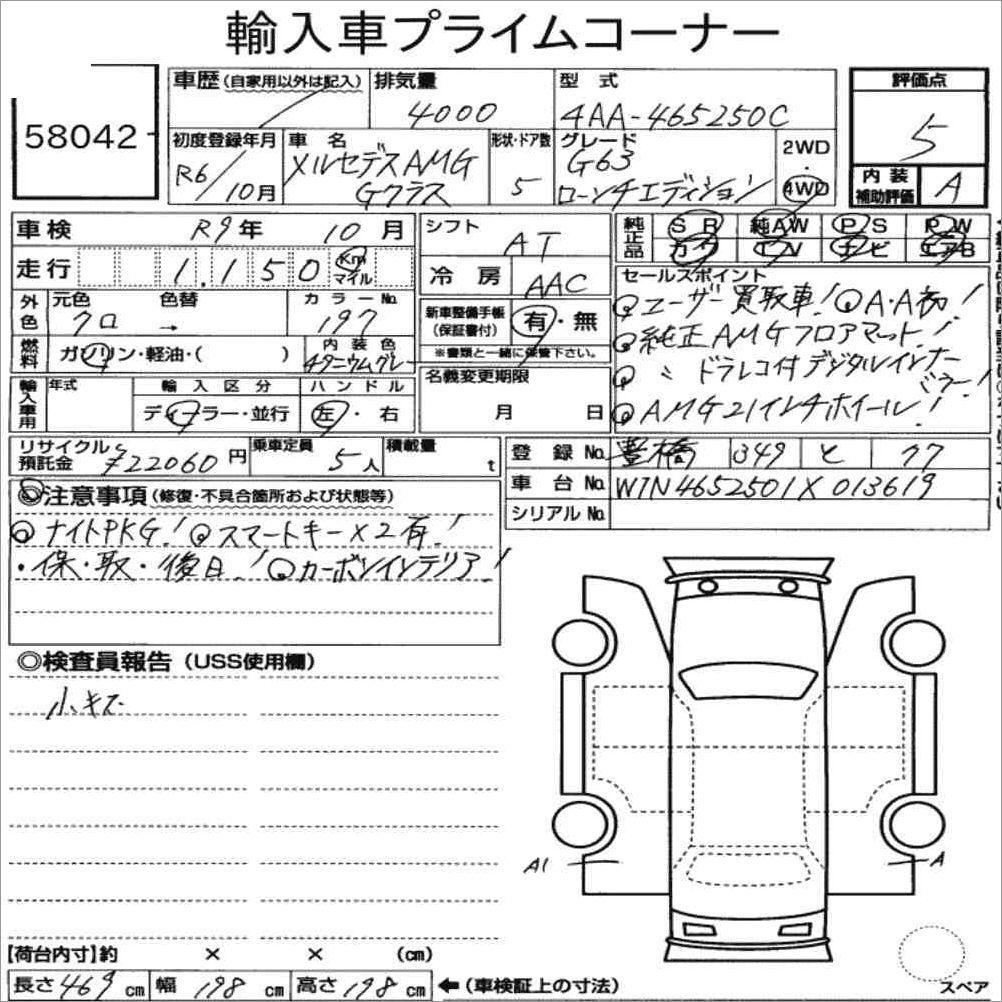 輸入車プライムコーナー
58042
車歴(自家用以外は記入) 排気量 4000 型式 4AA-465250C
初度登録年月 R6/10月 車名 メルセデスAMG Gクラス 形状・ドア数 5 グレード G63 ローンチエディション 2WD・4WD
評価点 5
内装補助評価 A
車検 R9年 10月
走行 1.150 Km マイル
外色 元色 クロ 色替 → カラーNo. 197
燃料 ガソリン・軽油・( ) 内装色 チタニウムグレー
輸入車用 年式 輸入区分 ディーラー・並行 ハンドル 左・右
シフト AT
冷房 AAC
新車整備手帳(保証書付) 有・無
※書類と一緒に保管下さい。
名義変更期限 月 日
純正品 SR 純AW PS PW
カワ TV ナビ エアB
セールスポイント
◎ユーザー買取車! ◎A・A初!
◎純正AMGフロアマット!
◎〃ドラレコ付デジタルインナーミラー!
◎AMG21インチホイール!
リサイクル預託金 ¥22060円 乗車定員 5人 積載量 t
登録No. 豊橋 349 と 77
車台No. W1N4652501X013619
シリアルNo.
◎注意事項(修復・不具合箇所および状態等)
◎ナイトPKG! ◎スマートキー×2有!
・保・取・後日! ◎カーボンインテリア!
◎検査員報告(USS使用欄)
小キズ
A1 A
【荷台内寸】約 × × (cm)
長さ469cm 幅198cm 高さ198cm ←(車検証上の寸法)
スペア